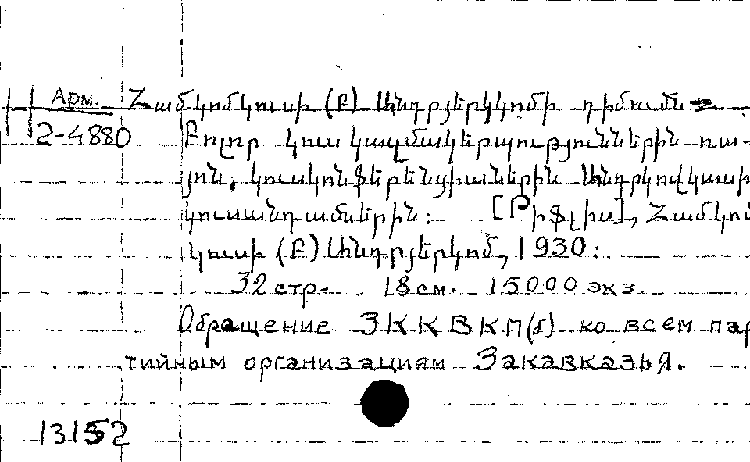 Арм. Համկոմկուսի (Բ) Անդրյերկկոմի դիմումն
2-4880 Բոլոր կուս կազմակերպություններին ռա-
յոն. կուսկոնֆերենցիաներին Անդրկովկասի
կուսանդամներին: [Թիֆլիս], Համկոմ
կուսի (Բ) Անդրյերկոմ, 1930:
32 стр. 18 см. 15000 экз.
Обращение ЗККВКП(б) ко всем пар
тийным организациям Закавказья.
13152